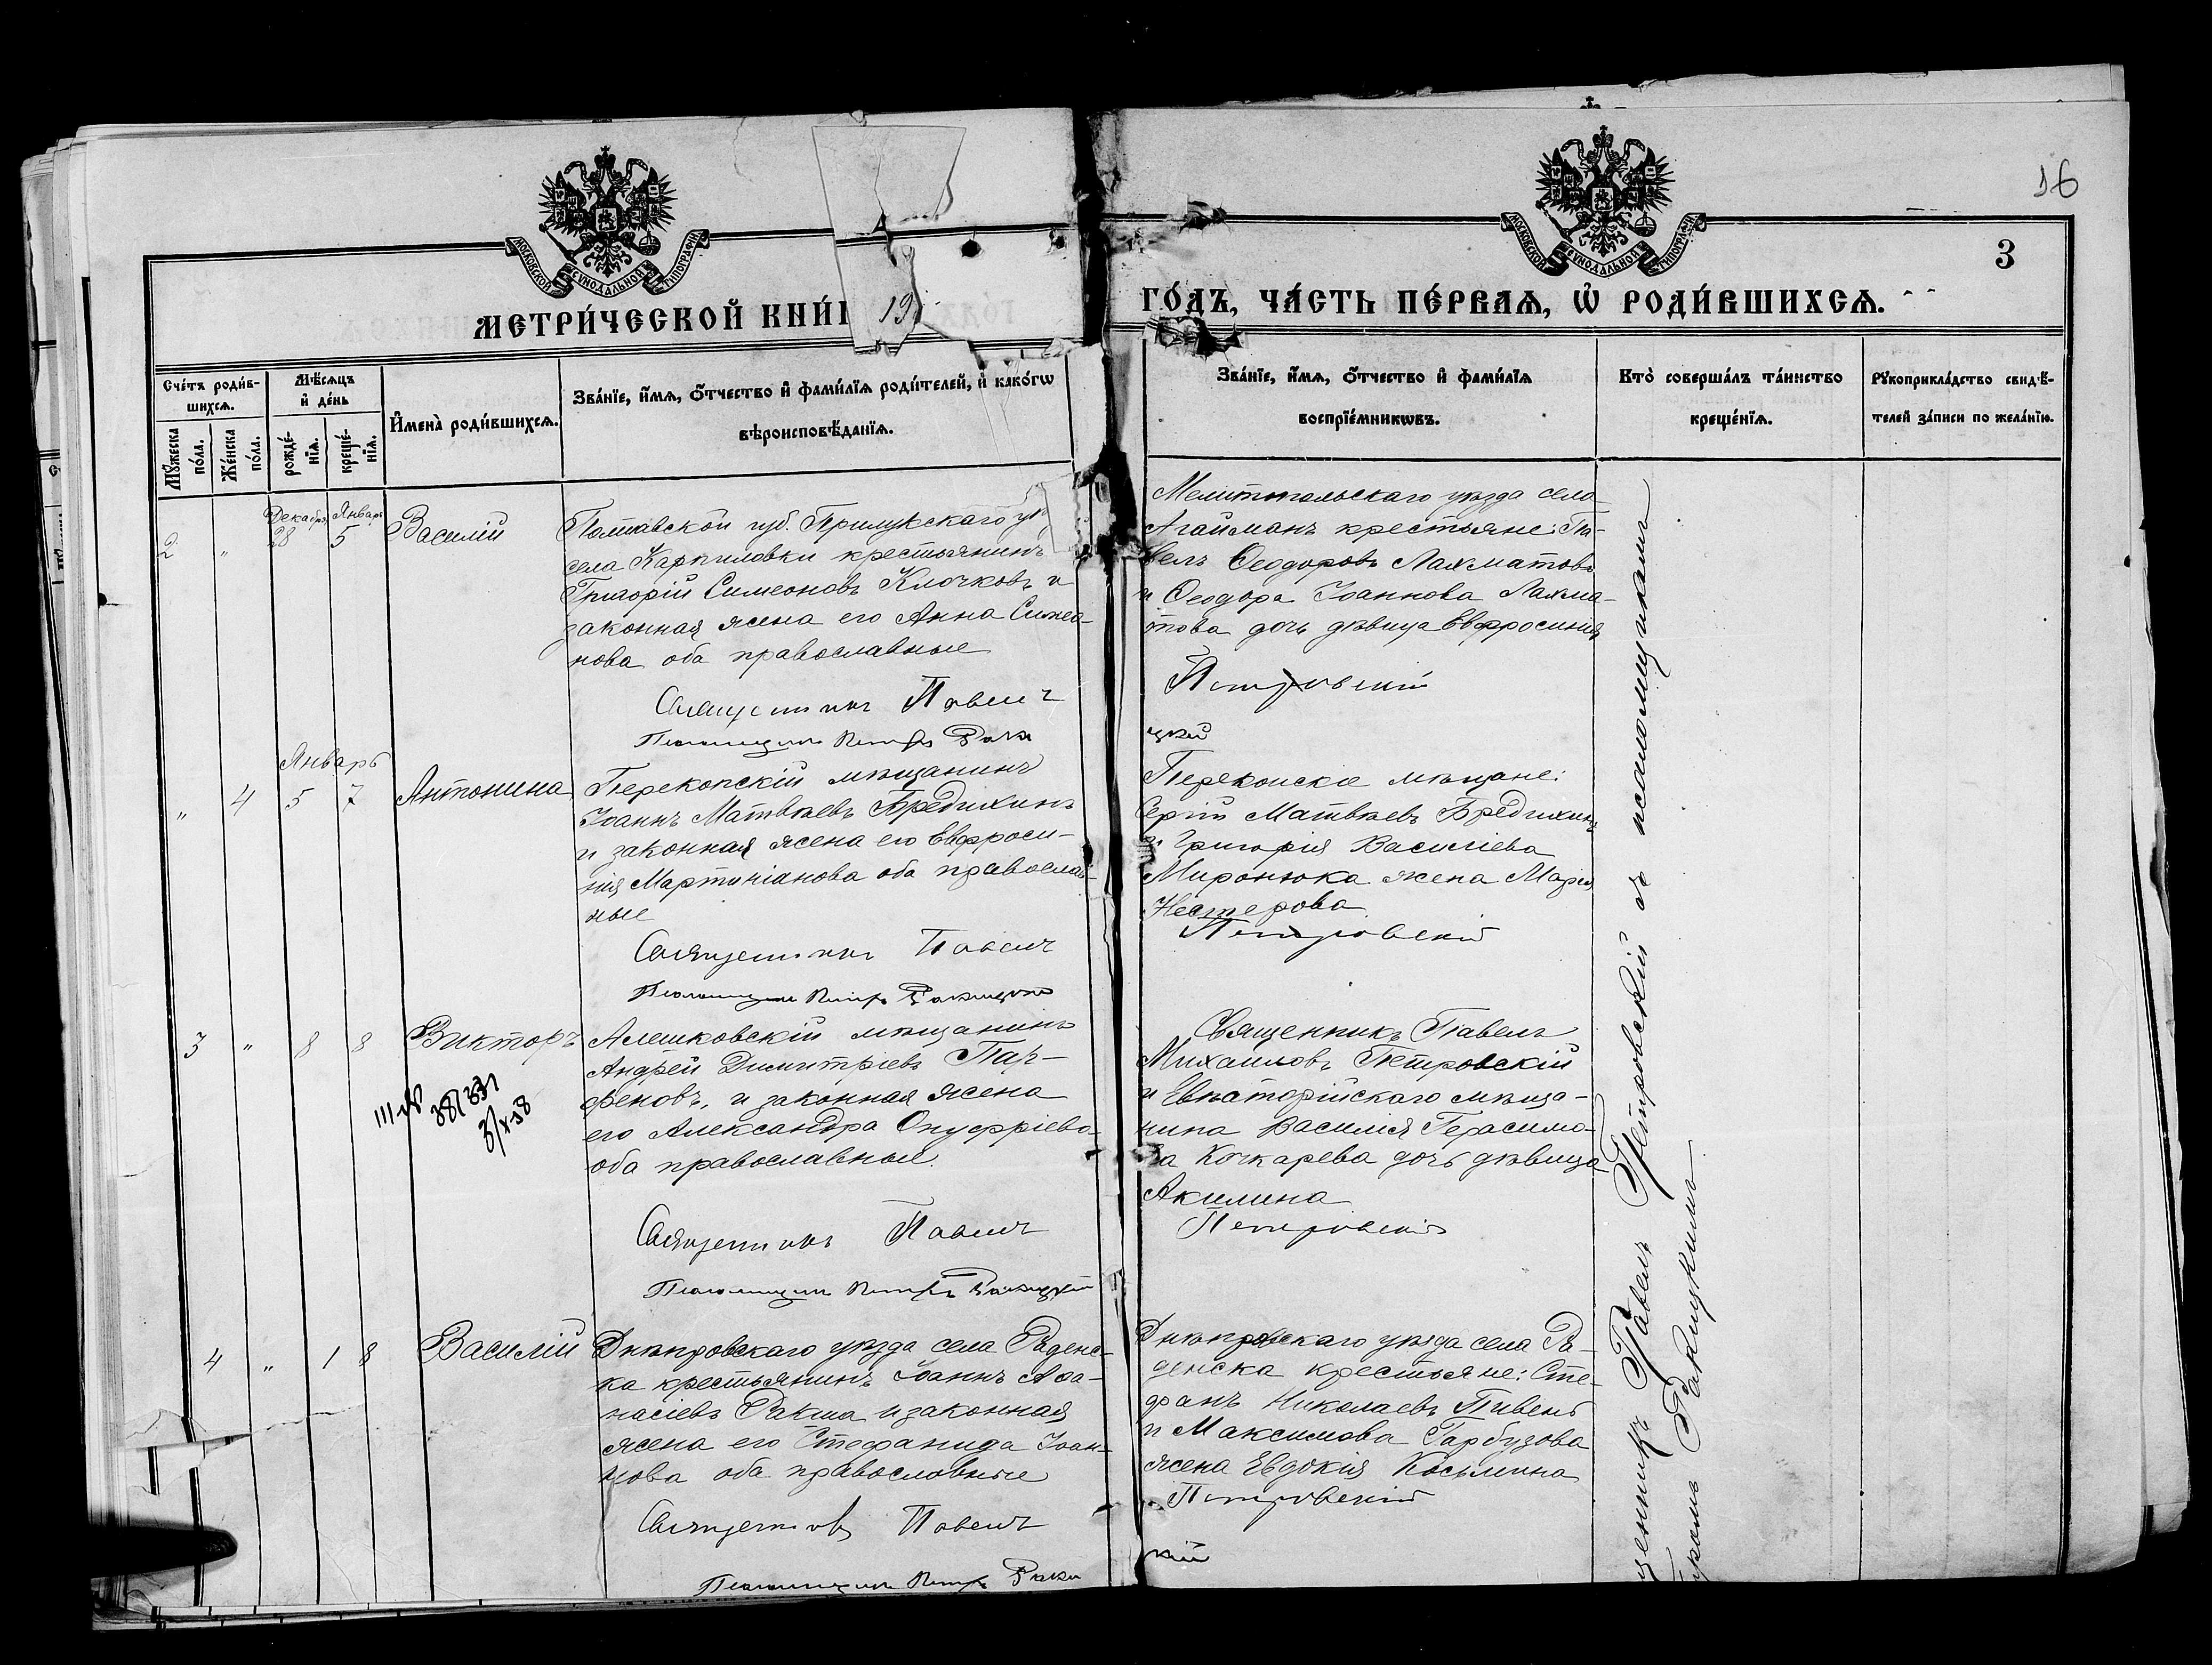 16
3
МОСКОВСКОЙ СѴНОДАЛЬНОЙ ТИПОГРАФІИ
МОСКОВСКОЙ СѴНОДАЛЬНОЙ ТИПОГРАФІИ
МЕТРИ́ЧЕСКОЙ КНИ́ 19
ГО́ДЪ, ЧА́СТЬ ПЕ́РВАѦ, Ѡ҆ РОДИ́ВШИХСѦ.
Сче́тъ роди́в-
шихсѧ.
Мꙋ́жеска
по́ла.
Же́нска
по́ла.
Мѣ́сѧцъ
и҆ де́нь
рожде́-
нїѧ.
креще́-
нїѧ.
И҆мена̀ роди́вшихсѧ.
Зва́нїе, и҆́мѧ, ѻ҆́тчество и҆ фами́лїѧ роди́телей, и҆ како́гѡ
вѣроисповѣ́данїѧ.
Зва́нїе, и҆́мѧ, ѻ҆́тчество и҆ фами́лїѧ
воспрїе́мникѡвъ.
Кто̀ соверша́лъ та́инство
креще́нїѧ.
Рꙋкоприкла́дство свидѣ́-
телей за́писи по жела́нїю.
2 " Декабрь 28 Январь 5 Василій
Полтавской губ. Прилукскаго у
села Карпиловки крестьянинъ
Григорій Симеоновъ Клочковъ и
законная жена его Анна Симео-
нова оба православные
Священникъ Павелъ
Псаломщикъ Петръ Раки
Мелитопольскаго уѣзда села
Агайманъ крестьяне: Па-
велъ Ѳеодоровъ Лахматовъ
и Ѳеодора Іоаннова Лахма-
това дочь дѣвица Евфросинія
Петровскій
цкій
" 4 Январь 5 7 Антонина
Перекопскій мѣщанинъ
Іоаннъ Матвѣевъ Бредихинъ
и законная жена его Евфроси-
нія Мартиніанова оба православ-
ные
Священникъ Павелъ
Псаломщикъ Петръ Ракицкій
Перекопскіе мѣщане:
Сергій Матвѣевъ Бредихинъ
и Григорія Василіева
Миронюка жена Марія
Нестерова
Петровскій
3 " 8 8 Викторъ
Алешковскій мѣщанинъ
Андрей Димитріевъ Пар-
феновъ, и законная жена
его Александра Онуфріева
оба православные.
Священникъ Павелъ
Псаломщикъ Петръ Ракицкій
Священникъ Павелъ
Михаиловъ Петровскій
и Евпаторійскаго мѣща-
нина Василія Герасимо-
ва Кочкарева дочь дѣвица
Акилина
Петровскій
4 " 1 8 Василій
Днѣпровскаго уѣзда села Раденс-
ка крестьянинъ Іоаннъ Аѳа-
насіевъ Ракша и законная
жена его Стефанида Іоан-
нова оба православные
Священникъ Павелъ
Псаломщикъ Петръ Раки
Днѣпровскаго уѣзда села Ра-
денска крестьяне: Сте-
фанъ Николаевъ Пивень
и Максимова Гарбузова
жена Евдокія Косьмина
Петровскій
кій
щенникъ Павелъ Петровскій съ псаломщикомъ
Петромъ Ракицкимъ